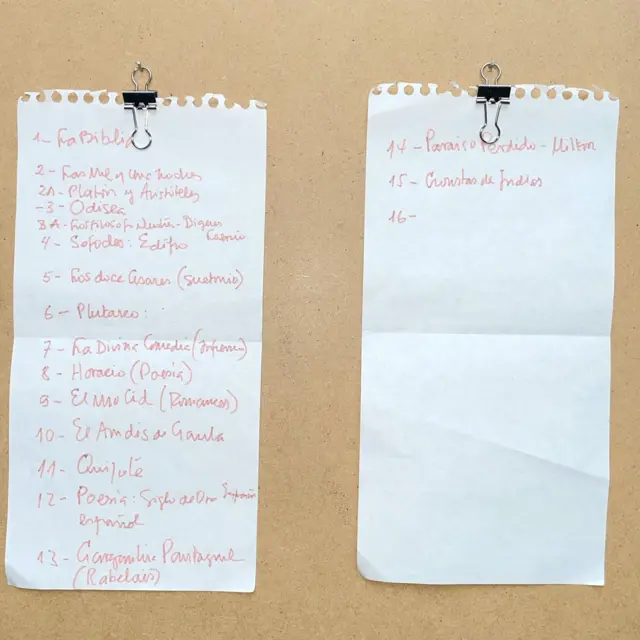 1- La Biblia
2- Las Mil y una noches
2A- Platón y Aristóteles
-3- Odisea
3A- Los Filósofos - Diógenes
Laercio
4- Sófocles: Edipo
5- Los doce Césares (Suetonio)
6- Plutarco:
7- La Divina Comedia (Infierno)
8- Horacio (Poesía)
9- El Mio Cid (Romances)
10- El Amadís de Gaula
11- Quijote
12- Poesía: Siglo de Oro
español
13- Gargantúa Pantagruel
(Rabelais)
14- Paraíso Perdido - Milton
15- Cronistas de Indias
16-